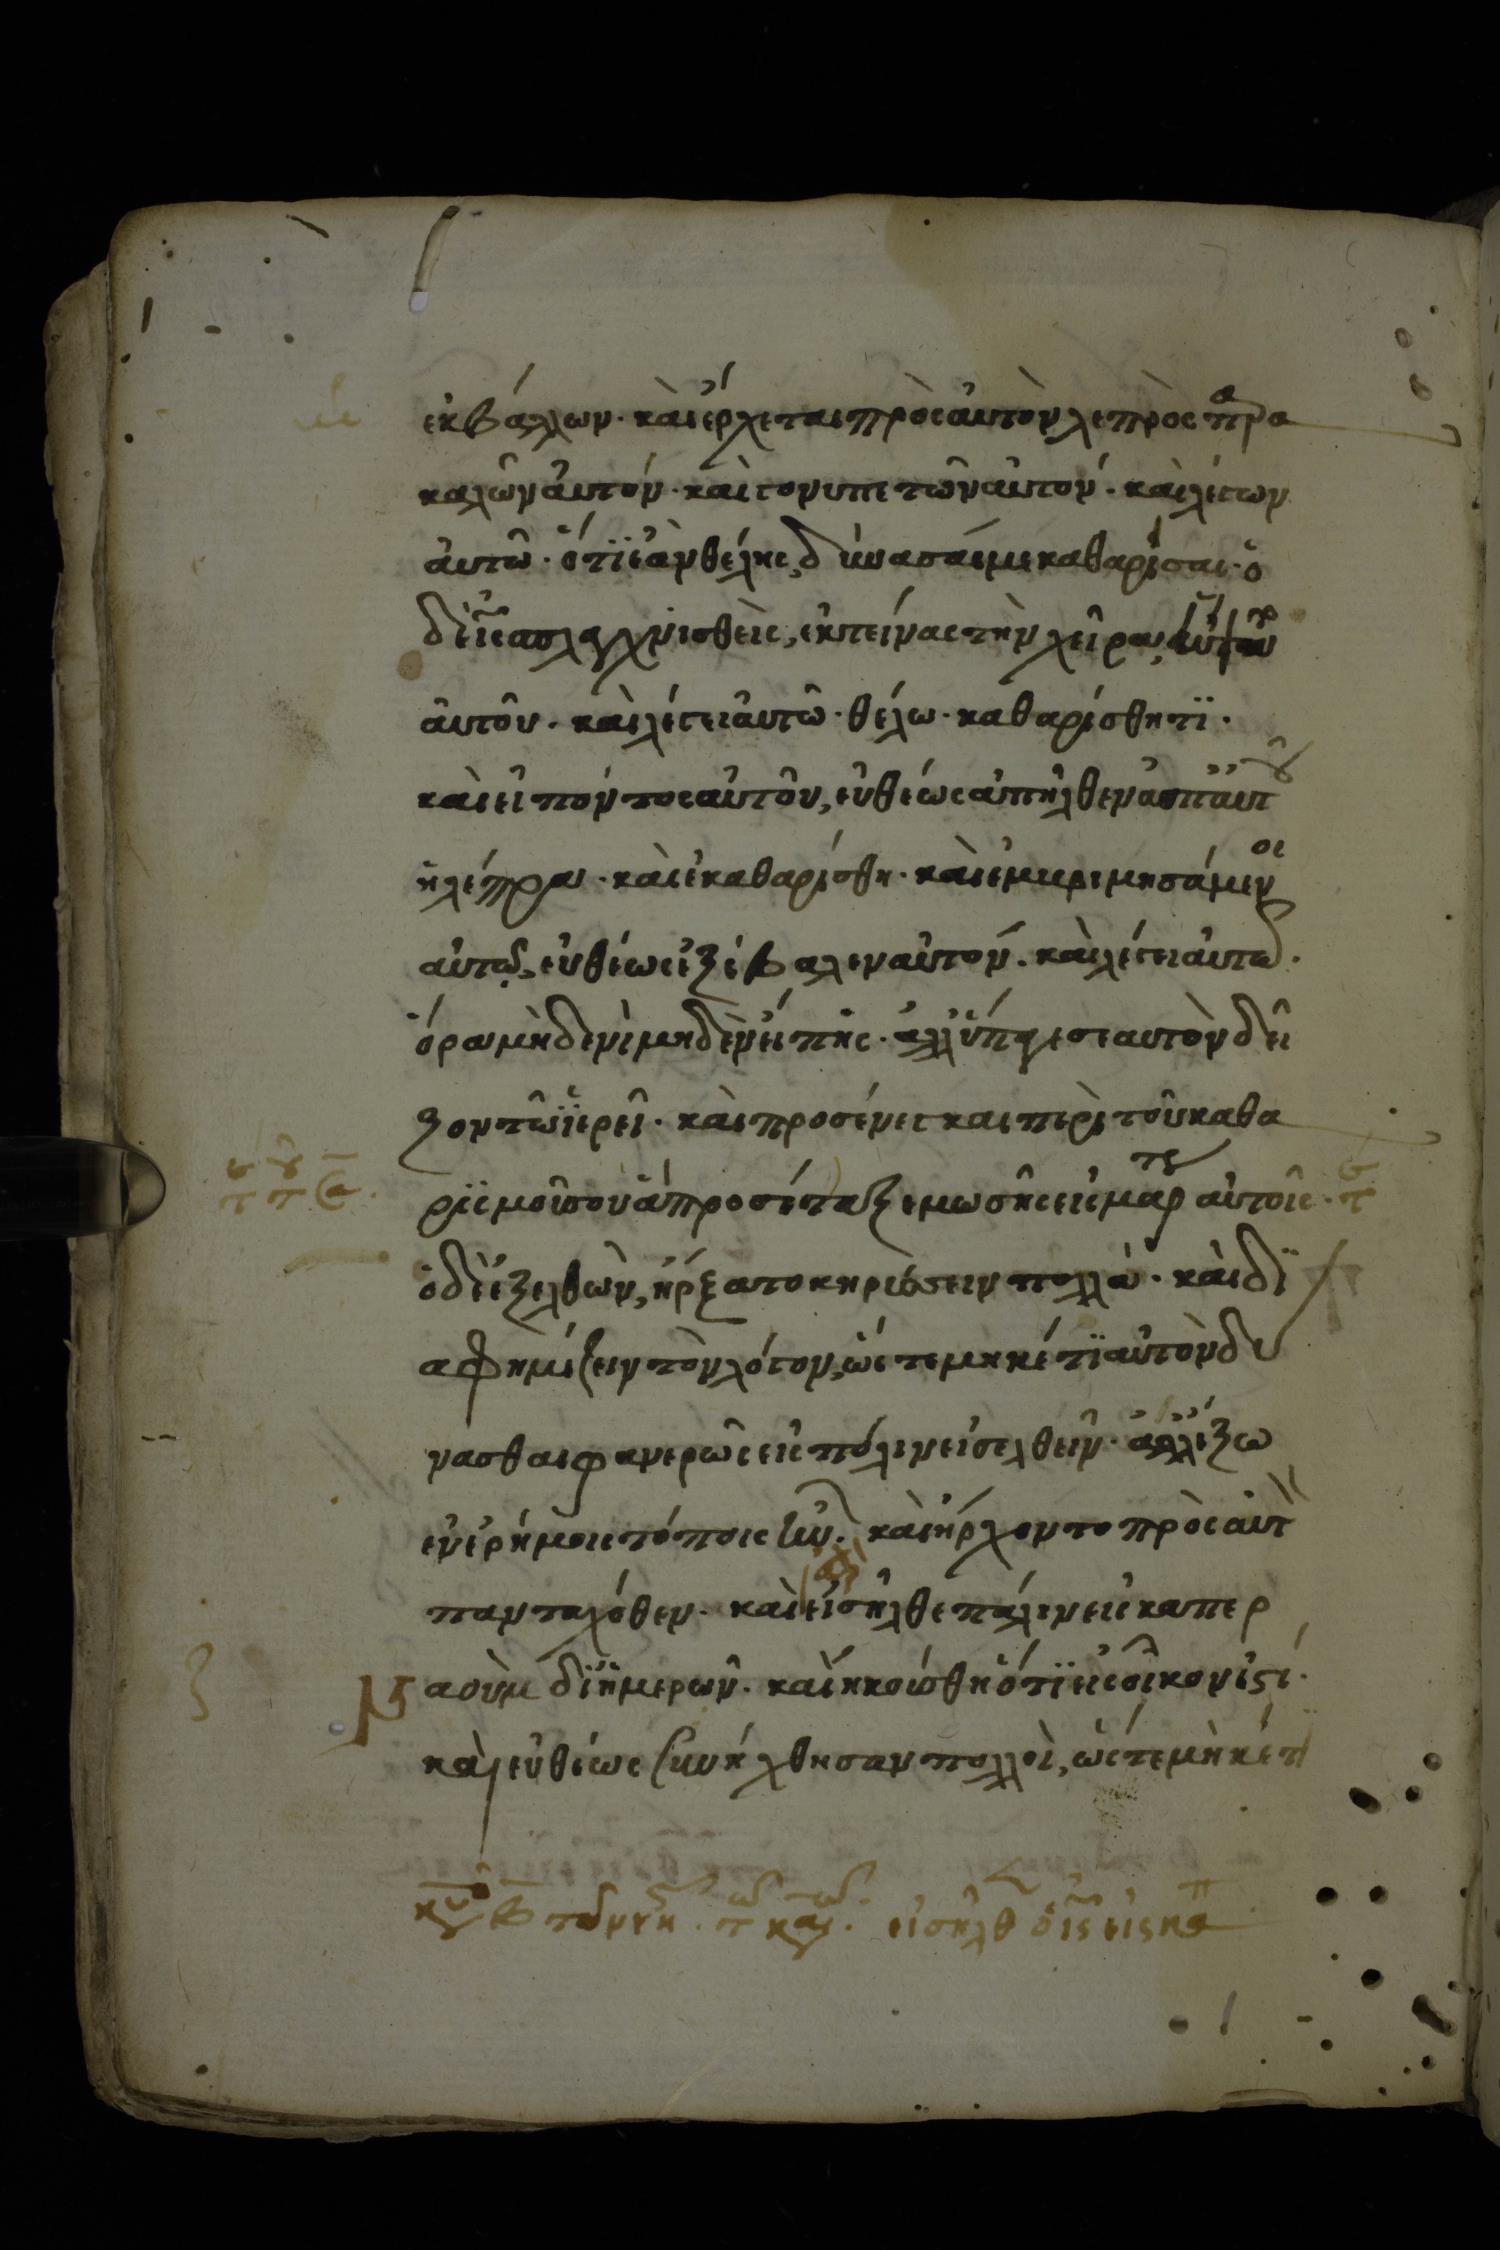 ἐκβάλλων· καὶ ἔρχεται πρὸς ἀυτὸν λεπρὸς πρα
καλῶν ἀυτόν· καὶ γονυπετῶν ἀυτόν· καὶ λέγων
ἀυτῶ· ὅτϊ ἐὰν θέλης, δύνασαί με καθαρίσαι· ὁ
δὲ ις σπλαγχνισθεὶς, ἐκτείνας τὴν χεῖρα, ἥψατο
ἀυτοῦ· καὶ λέγει ἀυτῶ· θέλω· καθαρίσθητϊ·
καὶ εἰπόντος ἀυτοῦ, ευθέως ἀπῆλθεν ἀπ ἀυτ
ἡ λέπρα· καὶ ἐκαθαρίσθη· καὶ ἐμβριμησάμενοι
ἀυτῶ, ευθέως ἐξέβαλεν ἀυτόν· καὶ λέγει ἀυτῶ·
ὅρα μηδενὶ μηδὲν εἴπης· ἀλλ ὕπαγε σεαυτὸν δεῖ
ξον τῶ ἱερεῖ· καὶ προσένεγκαι περὶ τοῦ καθα
ρϊσμοῦ σου ἁ προσέταξε μωσῆς εις μαρτυ ἀυτοῖς·
ὁ δὲ ἐξελθὼν, ἤρξατο κηρύσσειν πολλὰ· καὶ δϊ
αφημίζειν τὸν λόγον, ὥστε μηκέτϊ ἀυτὸν δυ
νασθαι φανερῶς εις πόλιν εἰσελθεῖν· ἀλλ ἔξω
ἐν ἐρήμοις τόποις ἦν· καὶ ἤρχοντο πρὸς ἀυτ
πανταχόθεν· καὶ εἰσῆλθε πάλιν εις καπερ
ναοὺμ δϊ ἡμερῶν· καὶ ηκούσθη ὅτϊ εις οἶκον ἐστί·
καὶ ευθέως συνήχθησαν πολλοὶ, ὥστε μὴ κέτι
κυ β τῶν νη· τ και· εἰσῆλθ ὁ ις εἰς καπ